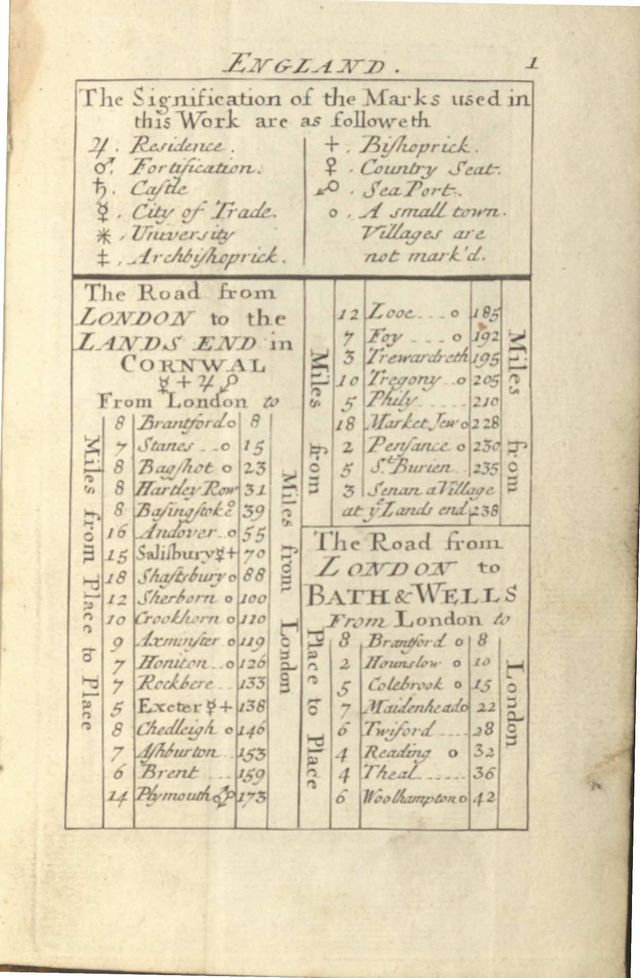 ENGLAND. 1
The Signification of the Marks used in
this Work are as followeth
♃. Residence.
♂. Fortification.
♄. Castle
☿. City of Trade.
⚹. University
‡. Archbishoprick.
+. Bishoprick.
♀. Country Seat.
Sea Port.
o. A small town.
Villages are
not mark'd.
The Road from
LONDON to the
LANDS END in
CORNWAL
☿ + ♃
From London to
Miles from Place to Place
Miles from London
8 Brantford o 8
7 Stanes o 15
8 Bagshot o 23
8 Hartley Row 31
8 Basingstoke 39
16 Andover o 55
15 Salisbury ☿ + 70
18 Shastsbury o 88
12 Sherborn o 100
10 Crookhorn o 110
9 Axminster o 119
7 Honiton o 126
7 Rockbere 133
5 Exeter ☿ + 138
8 Chedleigh o 146
7 Ashburton 153
6 Brent 159
14 Plymouth ♂ 173
Miles from
Miles from
12 Looe o 185
7 Foy o 192
3 Trewardreth 195
10 Tregony o 205
5 Phily 210
18 Market Jew o 228
2 Pensance o 230
5 St. Burien 235
3 Senan a Village
at ye Lands end 238
The Road from
LONDON to
BATH & WELLS
From London to
Place to Place
London
8 Brantford o 8
2 Hounslow o 10
5 Colebrook o 15
7 Maidenhead o 22
6 Twiford 28
4 Reading o 32
4 Theal 36
6 Woolhampton o 42